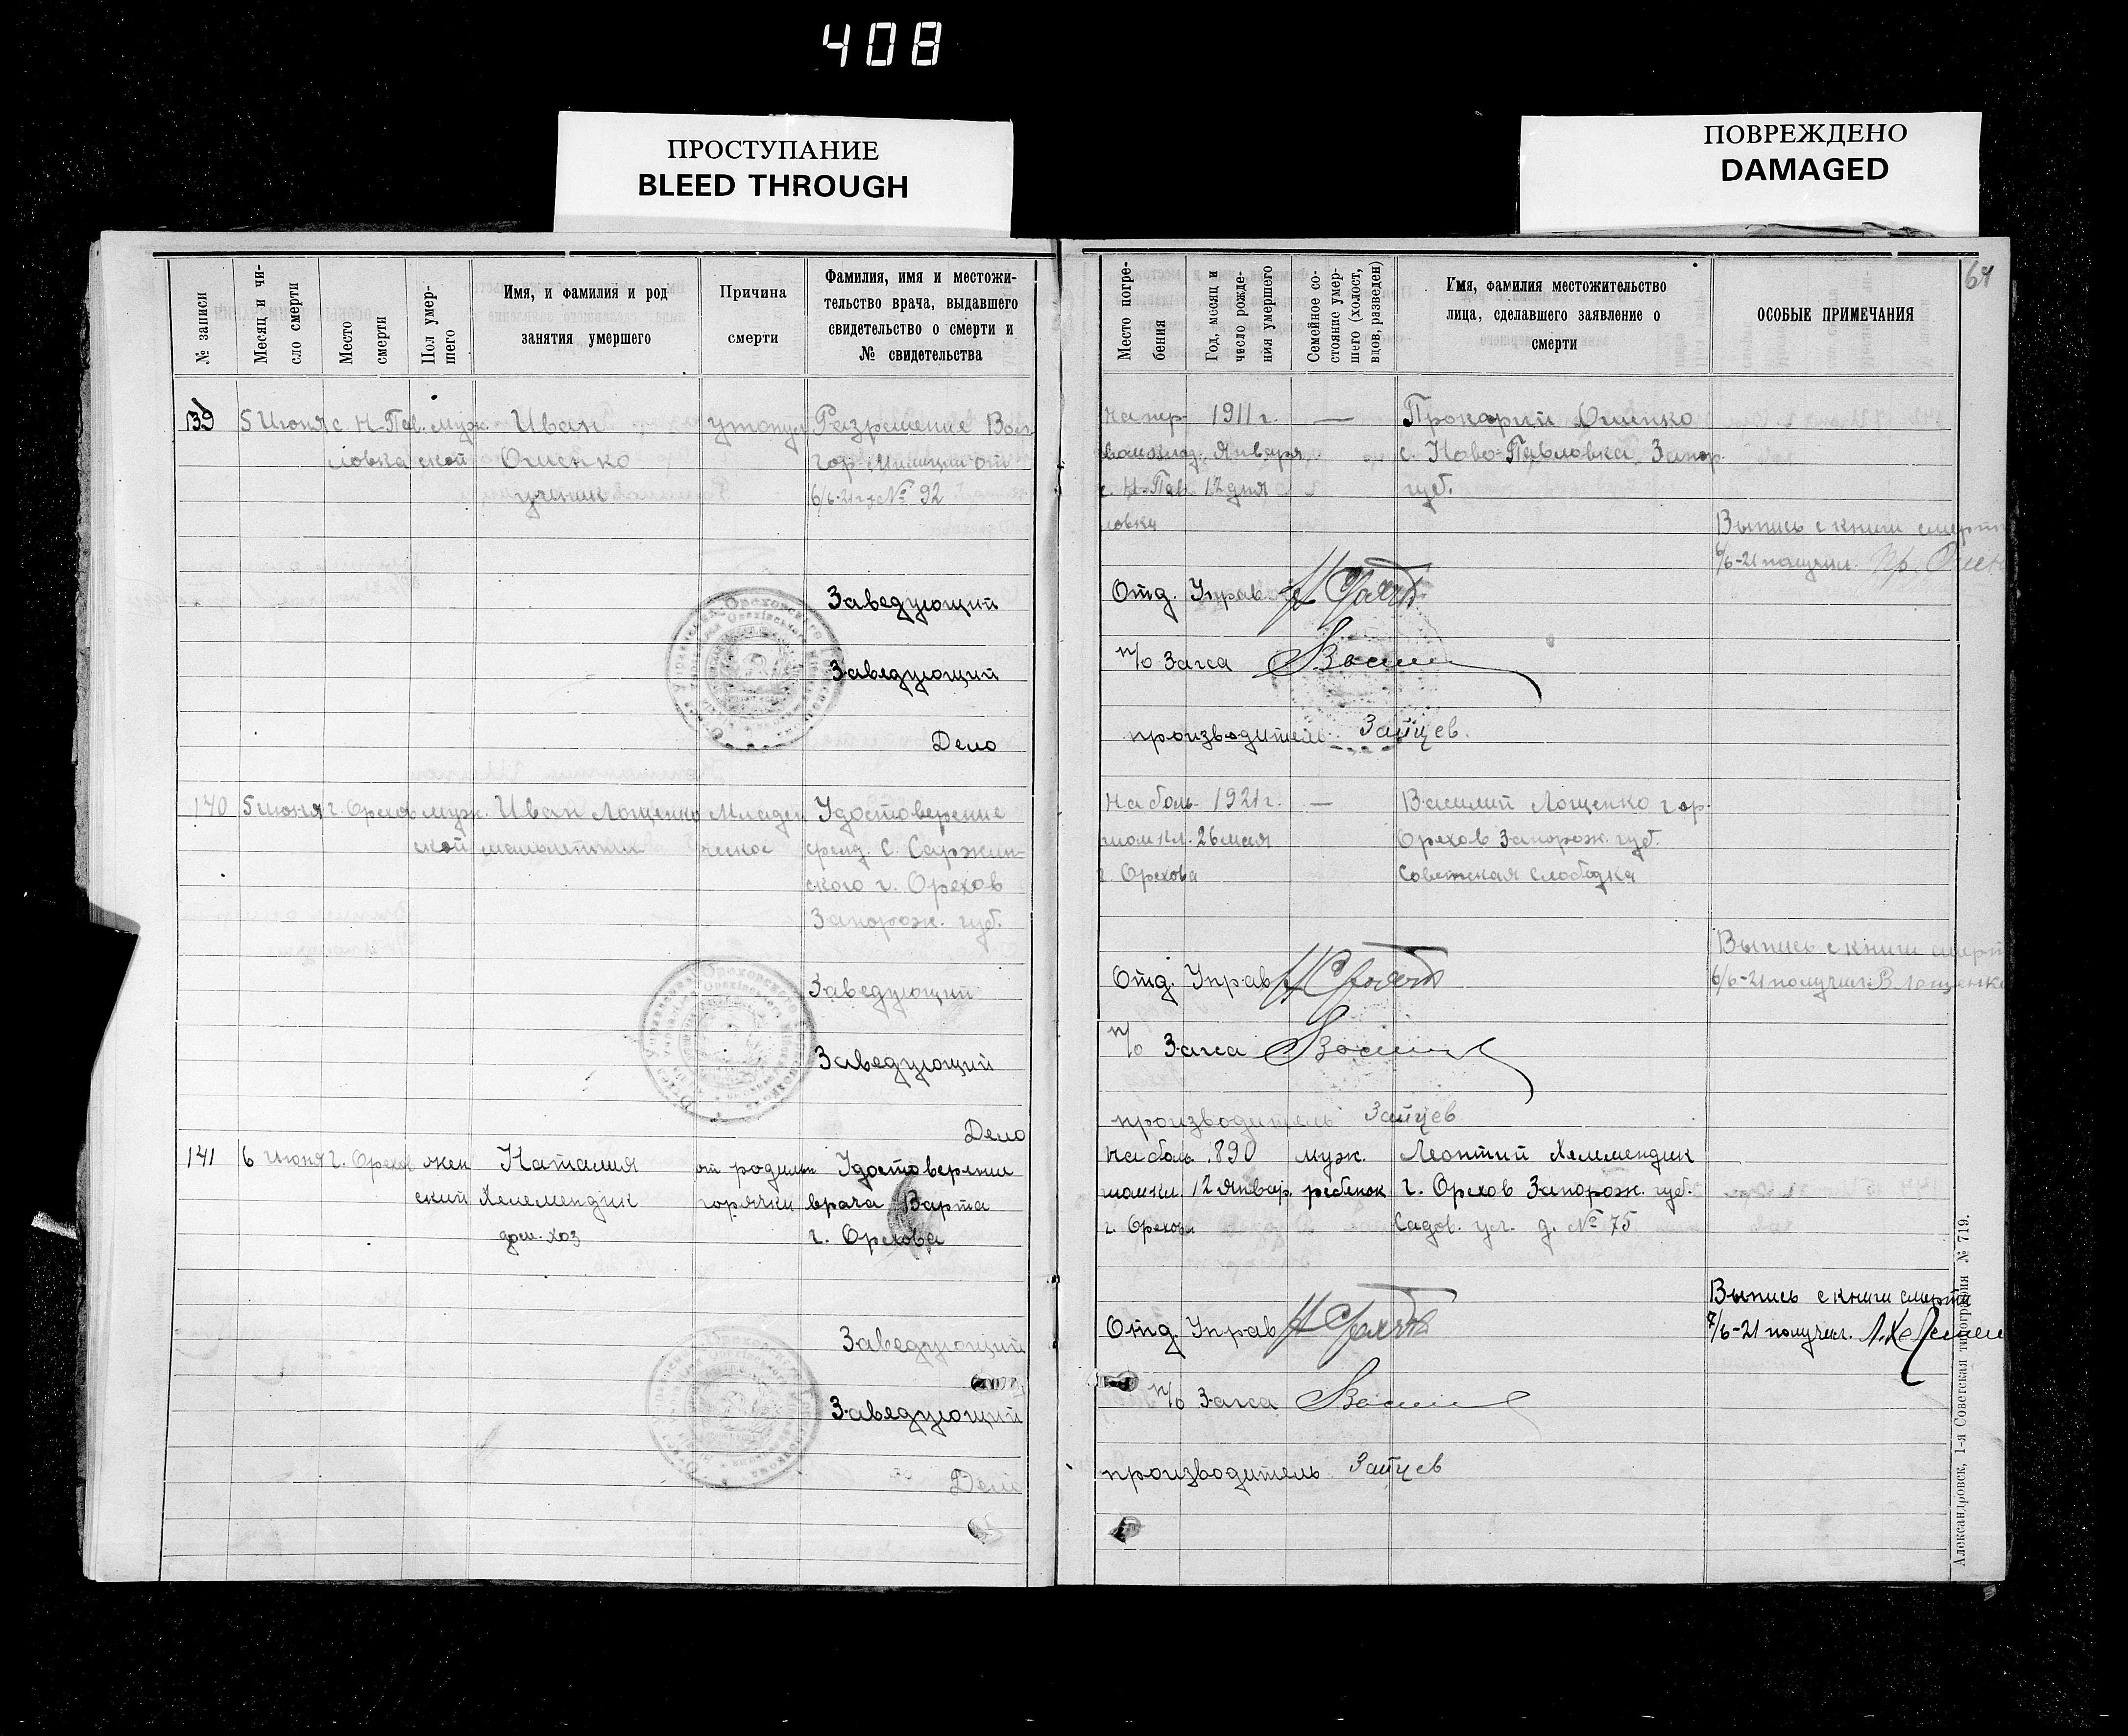 408
ПРОСТУПАНИЕ
BLEED THROUGH
ПОВРЕЖДЕНО
DAMAGED
№ записи
Месяц и чи-
сло смерти
Место
смерти
Пол умер-
шего
Имя, и фамилия и род
занятия умершего
Причина
смерти
Фамилия, имя и местожи-
тельство врача, выдавшего
свидетельство о смерти и
№ свидетельства
139 5 Июня с Н-Пав. муж Иван утонул Разрешение
ловка ской Ошенко гор милиции от
ученик 6/6-21 г. № 92
Заведующий
Заведующий
Дело
140 5 июня г. Орехов муж. Иван Лощенко Младен Удостоверение
ской ческое С. Саржин-
ского г. Орехов
Запорож. губ.
Заведующий
Заведующий
Дело
141 6 июня г. Орехов жен Наталия от родильн Удостоверение
ский Хелемендик горячки врача Варта
дом. хоз г. Орехова
Заведующий
Заведующий
Дело
Место погре-
бения
Год, месяц и
число рожде-
ния умершего
Семейное со-
стояние умер-
шего (холост,
вдов, разведен)
Имя, фамилия местожительство
лица, сделавшего заявление о
смерти
ОСОБЫЕ ПРИМЕЧАНИЯ
64
1911 г. — Ошенко
Января с. Ново-Павловка Запор.
с. Н-Пав 12 дня губ.
ловка
Выпись с книги смерти
6/6-21 получил
Отд. Управ
п/о Загса
производитель Зайцев.
на боль- 1921 г. — Василий Лощенко гор.
шом кл. 26 мая Орехов Запорож. губ.
г Орехова Советская Слободка
Выпись с книги смерти
6/6-21 получил: В Лощенко
Отд. Управ
п/о Загса
производитель Зайцев
на боль 1890 муж. Леонтий Хелемендик
шом кл. 12 Январ. ребенок г. Орехов Запорож. губ.
г. Орехов Садов. ул. д. № 75
Выпись с книги смерти
7/6-21 получил.
Отд. Управ
п/о Загса
производитель Зайцев
Александровск, 1-я Советская типография № 719.